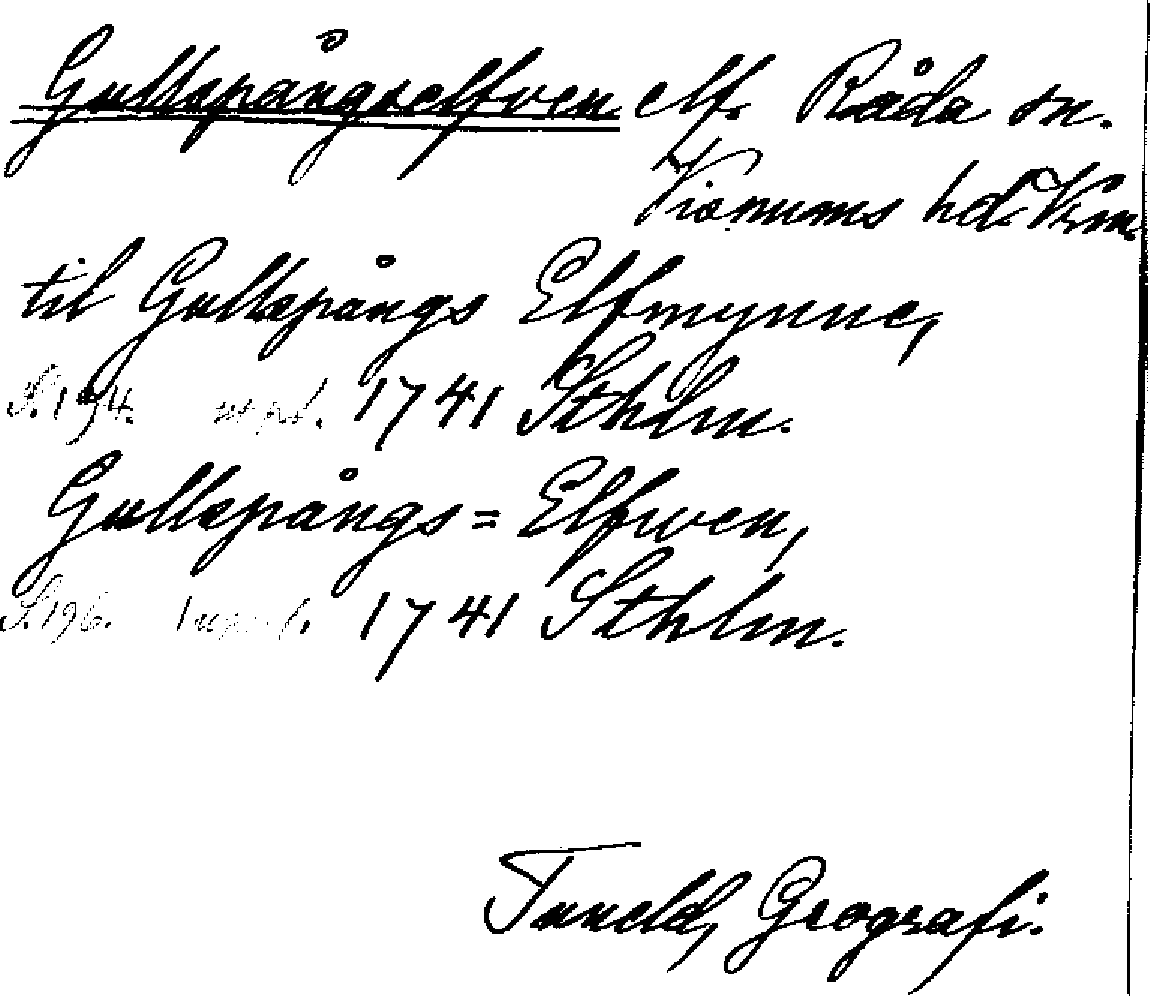 Gullspångselfven elf. Råda sn.
Visnums hd. Vrm.
til Gullspångs Elfmynne,
S. 194. 1741 Sthlm.
Gullspångs=Elfwen,
S. 196. 1741 Sthlm.
Tuneld, Geografi.